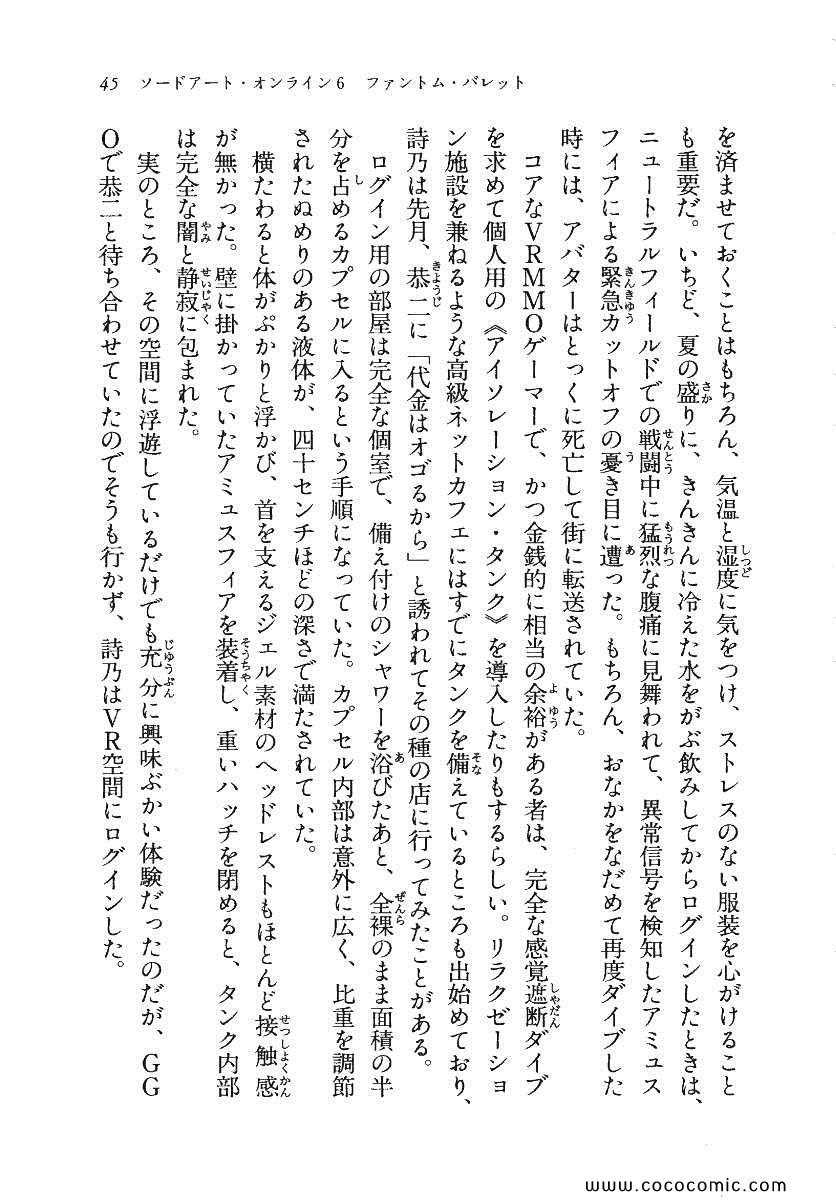 45 ソードアート・オンライン6 ファントム・バレット
を済ませておくことはもちろん、気温と湿度に気をつけ、ストレスのない服装を心がけること
も重要だ。いちど、夏の盛りに、きんきんに冷えた水をがぶ飲みしてからログインしたときは、
ニュートラルフィールドでの戦闘中に猛烈な腹痛に見舞われて、異常信号を検知したアミュス
フィアによる緊急カットオフの憂き目に遭った。もちろん、おなかをなだめて再度ダイブした
時には、アバターはとっくに死亡して街に転送されていた。
コアなVRMMOゲーマーで、かつ金銭的に相当の余裕がある者は、完全な感覚遮断ダイブ
を求めて個人用の《アイソレーション・タンク》を導入したりもするらしい。リラクゼーショ
ン施設を兼ねるような高級ネットカフェにはすでにタンクを備えているところも出始めており、
詩乃は先月、恭二に「代金はオゴるから」と誘われてその種の店に行ってみたことがある。
ログイン用の部屋は完全な個室で、備え付けのシャワーを浴びたあと、全裸のまま面積の半
分を占めるカプセルに入るという手順になっていた。カプセル内部は意外に広く、比重を調節
されたぬめりのある液体が、四十センチほどの深さで満たされていた。
横たわると体がぷかりと浮かび、首を支えるジェル素材のヘッドレストもほとんど接触感
が無かった。壁に掛かっていたアミュスフィアを装着し、重いハッチを閉めると、タンク内部
は完全な闇と静寂に包まれた。
実のところ、その空間に浮遊しているだけでも充分に興味ぶかい体験だったのだが、GG
Oで恭二と待ち合わせていたのでそうも行かず、詩乃はVR空間にログインした。
www.cococomic.com